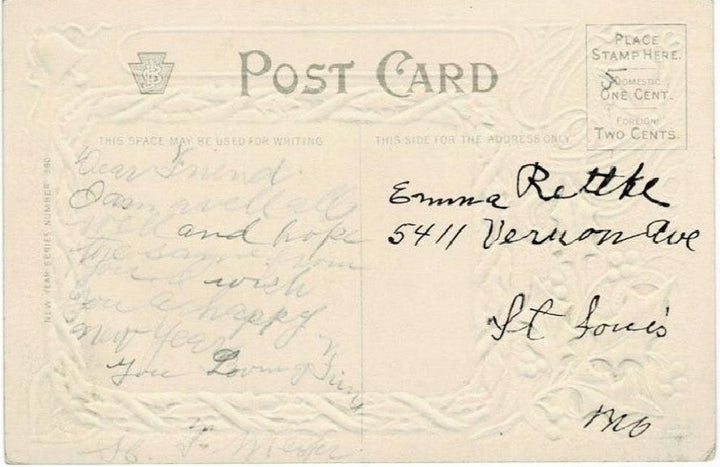 POST CARD
PLACE
STAMP HERE.
DOMESTIC
ONE CENT.
FOREIGN
TWO CENTS.
5
THIS SPACE MAY BE USED FOR WRITING
THIS SIDE FOR THE ADDRESS ONLY
NEW YEAR SERIES NUMBER
Dear Friend.
I am well
and hope
the same from
you I wish
you a happy
New Year
You Loving Frien
Emma Rettke
5411 Vernon Ave
St Louis
Mo